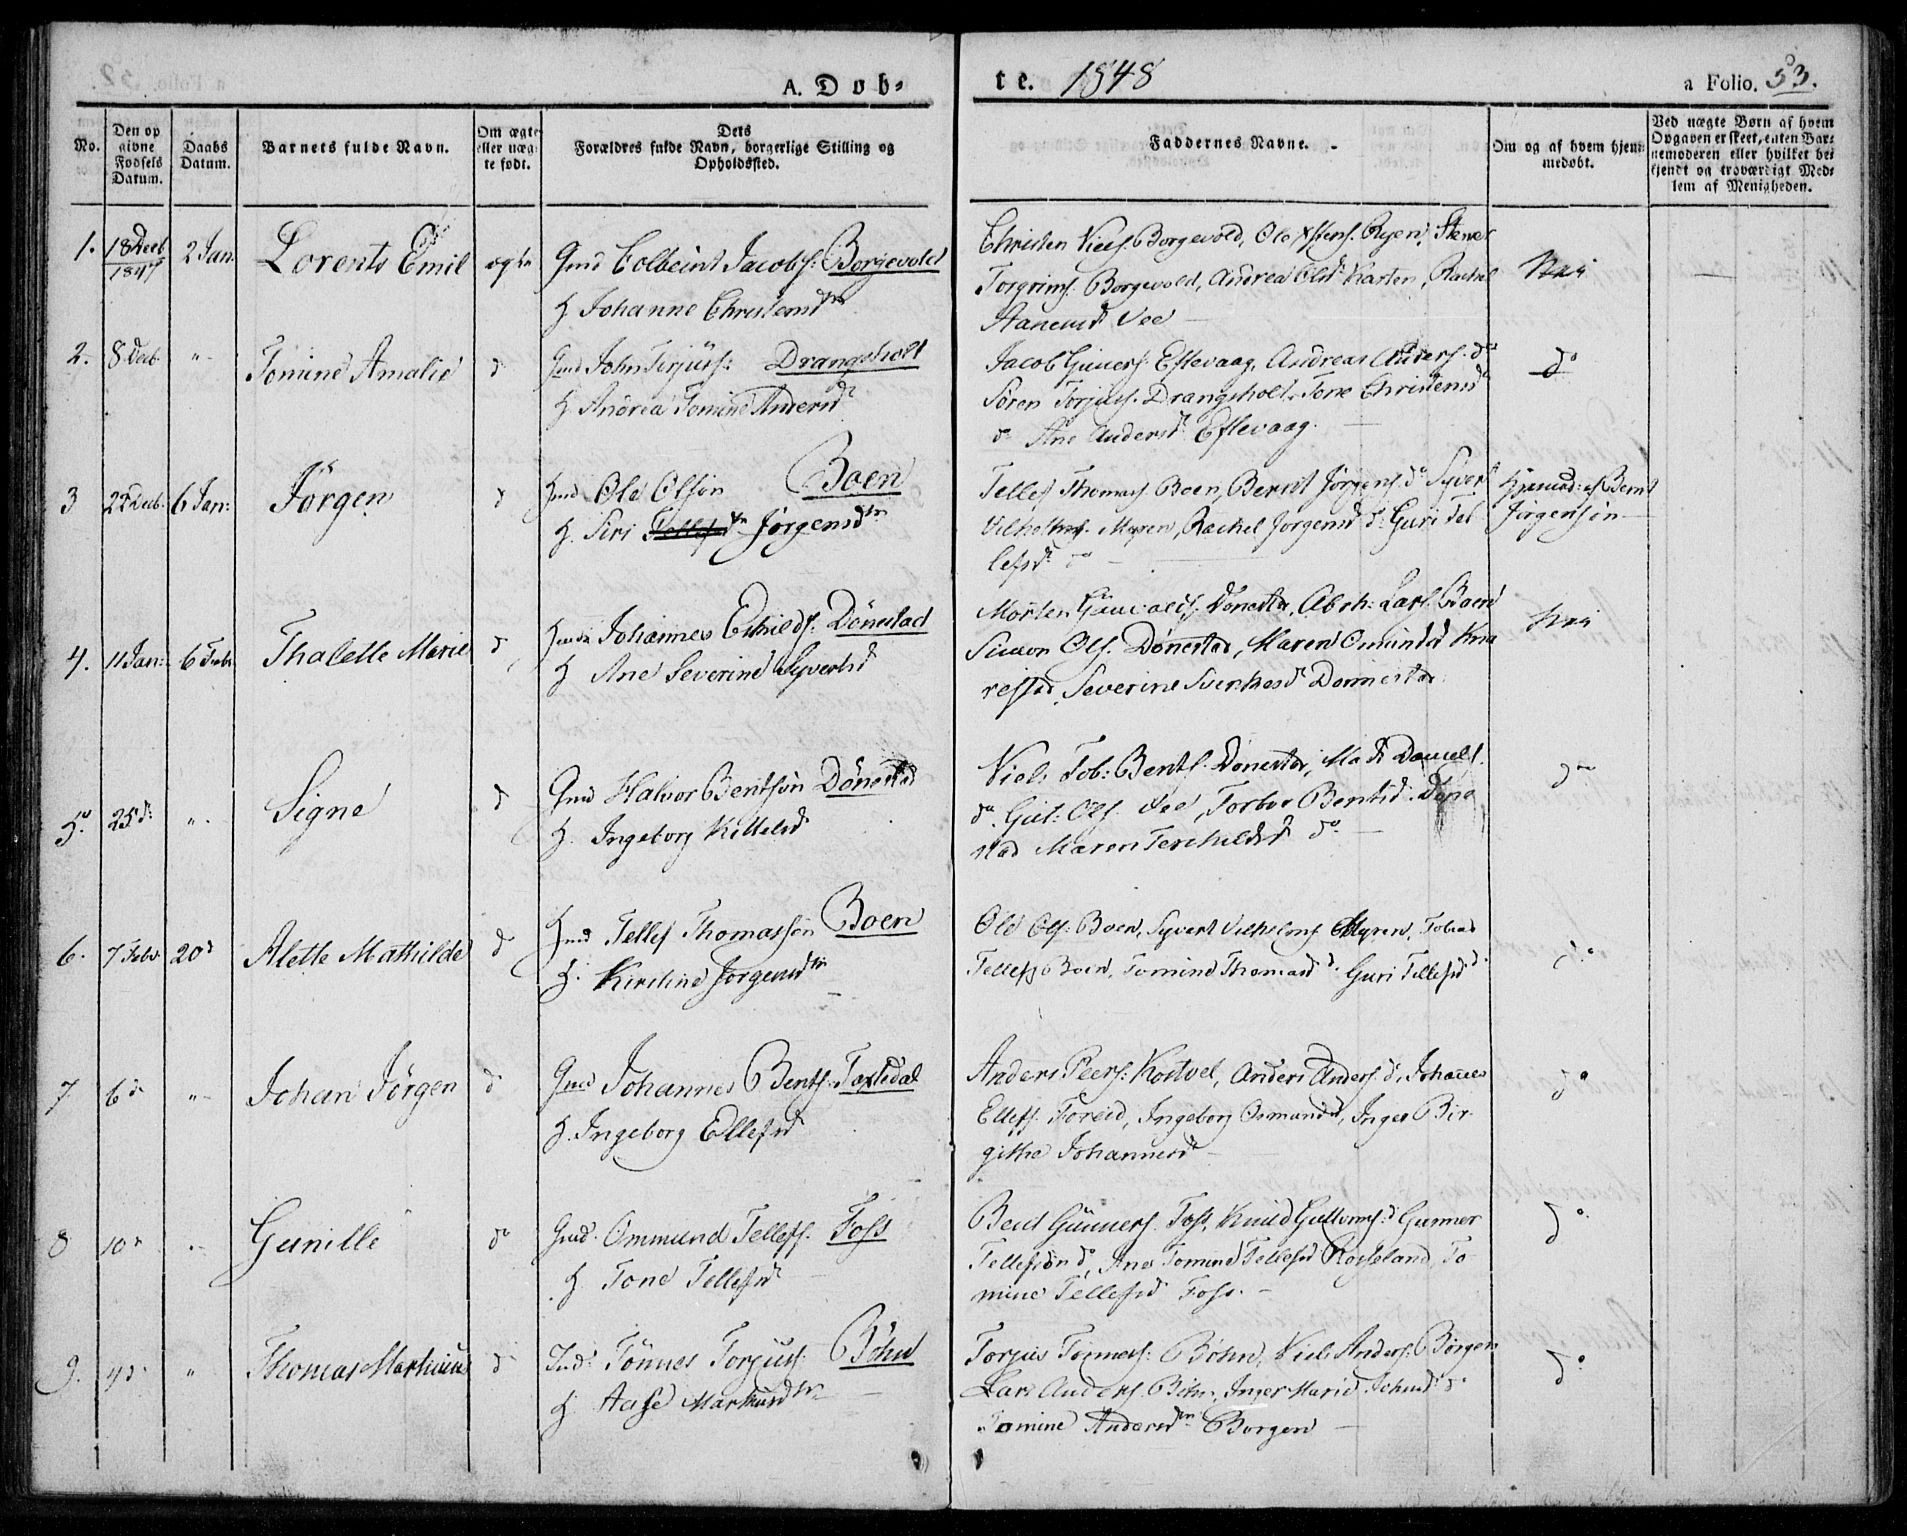 A. Døb-
te. 1848
a Folio. 53.
No.
Den op givne Fødsels Datum.
Daabs Datum.
Barnets fulde Navn.
Om ægte eller uæg- te født.
Dets
Forældres fulde Navn, borgerlige Stilling og
Opholdssted.
Faddernes Navne.
Om og af hvem hjem- medøbt.
Ved uægte Børn af hvem
Opgaven er skeet, enten Bar-
nemoderen eller hvilket be-
kjendt og troværdigt Med-
lem af Menigheden.
1. 18 Decb 1847 2 Jan Lorents Emil ægte Gmd Colbeint Jacobs: Borgevold
H Johanne Christensdtr
Christen Niels. Borgevold, Ole Ryen,
Torgrims. Borgevold, Andrea Olsd Karten, Rachel
Vee
2. 8 Decb " Tomine Amalie d Gmd John Terjus: Drangsholt
H Andrea Tomine Andersd
Jacob Guners. Eftevaag, Andreas Anders. do
Søren Torjus. Drangsholt, Tone Christensd
do Ane Andersd Eftevaag.
do
3 22 Decb 6 Jan: Jörgen d Gmd Ole Olsön Boen
H. Siri Jörgensdtr
Tellef Thomas. Boen, Bernt Jörgens. do Syvert
Vilhelms. Myren, Rachel Jorgensd d: Guri Tel
lefsd do
Hjemmed: af Bernt
Jørgensön
4. 11 Jan: 6 Feb: Thalette Marie d Johannes Eskilds: Dönestad
H Ane Severine Syvertsd
Morten Dønestad, Abrh: Lars. Boen
Simon Ols. Dønestad, Maren Omundsd Kna
restad, Severine Donnestad
5. 25 d: " Signe d Gmd Halvor Bentsön Dönestad
H. Ingeborg Kittelsd
Niels Tob: Bents. Dønestad, Mads Daniels.
do. Gut: Ols. Vee, Torbor Bentsd. Döne
stad Maren Terkildsd do
do
6. 7 Febr 20 d Alette Mathilde d Gmd Tellef Thomassön Boen
H. Kirstine Jörgensdtr
Ole Ols: Boen, Syvert Vilhelms. Myren, Tobias
Tellefs. Boen, Tomine Thomasd d. Guri Tellefsd d.
do
7. 6 d " Johan Jörgen d Gmd Johannes Bents: Topdal
H. Ingeborg Ellefsd
Anders Peers: Kostvet, Anders Anders. d, Johannes
Ellefs. Foreid, Ingeborg Osmundsd, Inger Bir
githe Johannesd
do
8 10 d " Gunille do Gmd. Ommund Tellefs. Foss
H Tone Tellefsd
Bent Gunners. Foss, Knud Guttorms. d Gunner
Tellefsön do, Ane Tomine Tellefsd Rosseland, To
mine Tellefsd Foss.
do
9. 4 d " Thomas Mathias d Tönnes Torjus: Böhn
H. Aase Markusdtr
Torjus Tønnes: Bøhn, Niels Anders: Børgen
Lars Anders. Bøhn, Inger Marie Johnsd do
Tomine Andersdtr Borgen
do